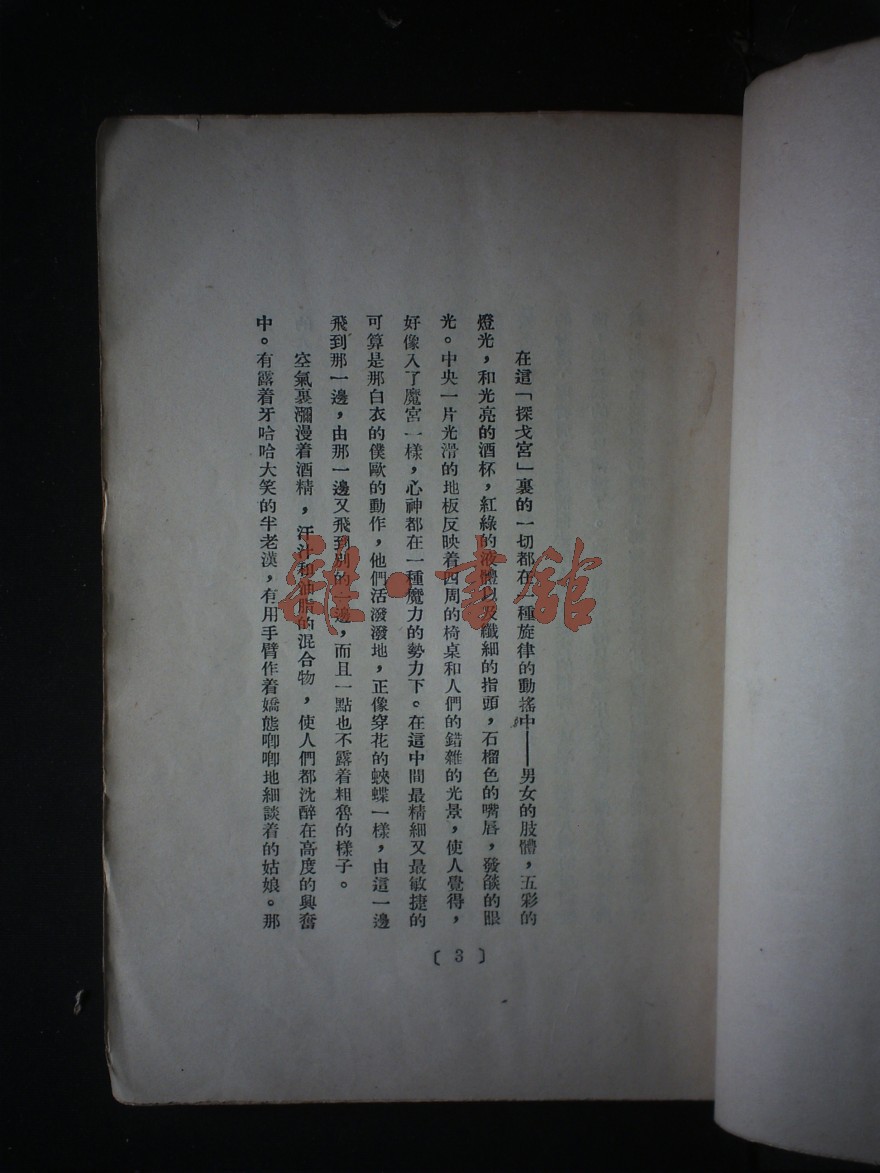 在這「探戈宮」裏的一切都在一種旋律的動搖中——男女的肢體，五彩的
燈光，和光亮的酒杯，紅綠的液體以及纖細的指頭，石榴色的嘴唇，發燄的眼
光。中央一片光滑的地板反映着四周的椅桌和人們的錯雜的光景，使人覺得，
好像入了魔宮一樣，心神都在一種魔力的勢力下。在這中間最精細又最敏捷的
可算是那白衣的僕歐的動作，他們活潑潑地，正像穿花的蛺蝶一樣，由這一邊
飛到那一邊，由那一邊又飛到別的一邊，而且一點也不露着粗魯的樣子。
空氣裏瀰漫着酒精，汗汁和油脂的混合物，使人們都沈醉在高度的興奮
中。有露着牙哈哈大笑的半老漢，有用手臂作着嬌態唧唧地細談着的姑娘。那
〔3〕
雜·書館